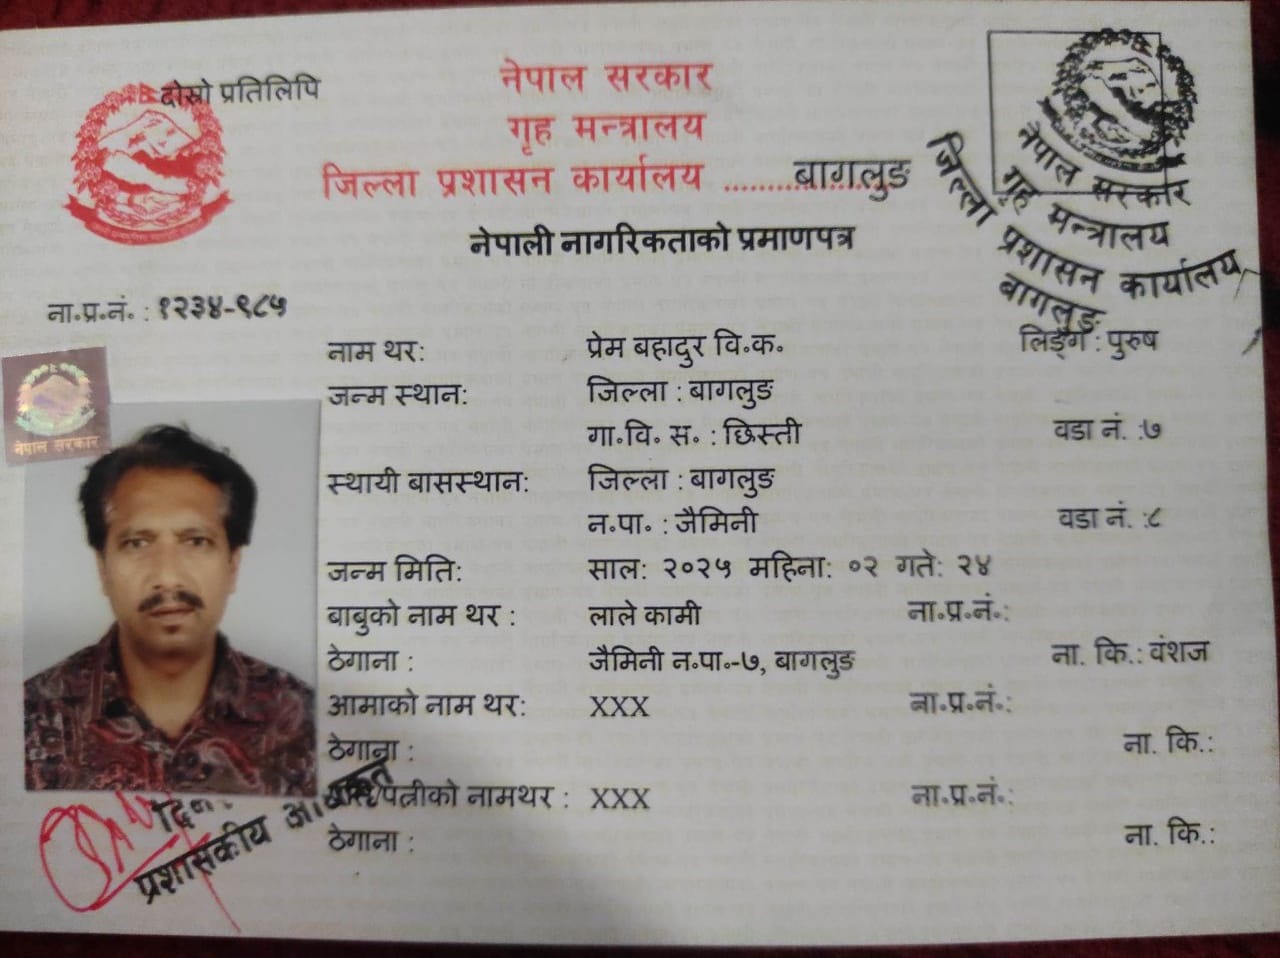 दोस्रो प्रतिलिपि
नेपाल सरकार
गृह मन्त्रालय
जिल्ला प्रशासन कार्यालय ................ बागलुङ
नेपाली नागरिकताको प्रमाणपत्र
नेपाल सरकार
गृह मन्त्रालय
जिल्ला प्रशासन कार्यालय
बागलुङ
ना.प्र.नं. : १२३४-९८५
नाम थर: प्रेम बहादुर वि.क. लिङ्ग : पुरुष
जन्म स्थान: जिल्ला : बागलुङ
गा.वि. स. : छिस्ती वडा नं. :७
स्थायी बासस्थान: जिल्ला : बागलुङ
न.पा. : जैमिनी वडा नं. :८
जन्म मिति: साल: २०२५ महिना: ०२ गते: २४
बाबुको नाम थर : लाले कामी ना.प्र.नं.:
ठेगाना : जैमिनी न.पा.-७, बागलुङ ना. कि.: वंशज
आमाको नाम थर: XXX ना.प्र.नं.:
ठेगाना : ना. कि.:
पत्नीको नामथर : XXX ना.प्र.नं.:
ठेगाना : ना. कि.:
नेपाल सरकार
प्रशासकीय